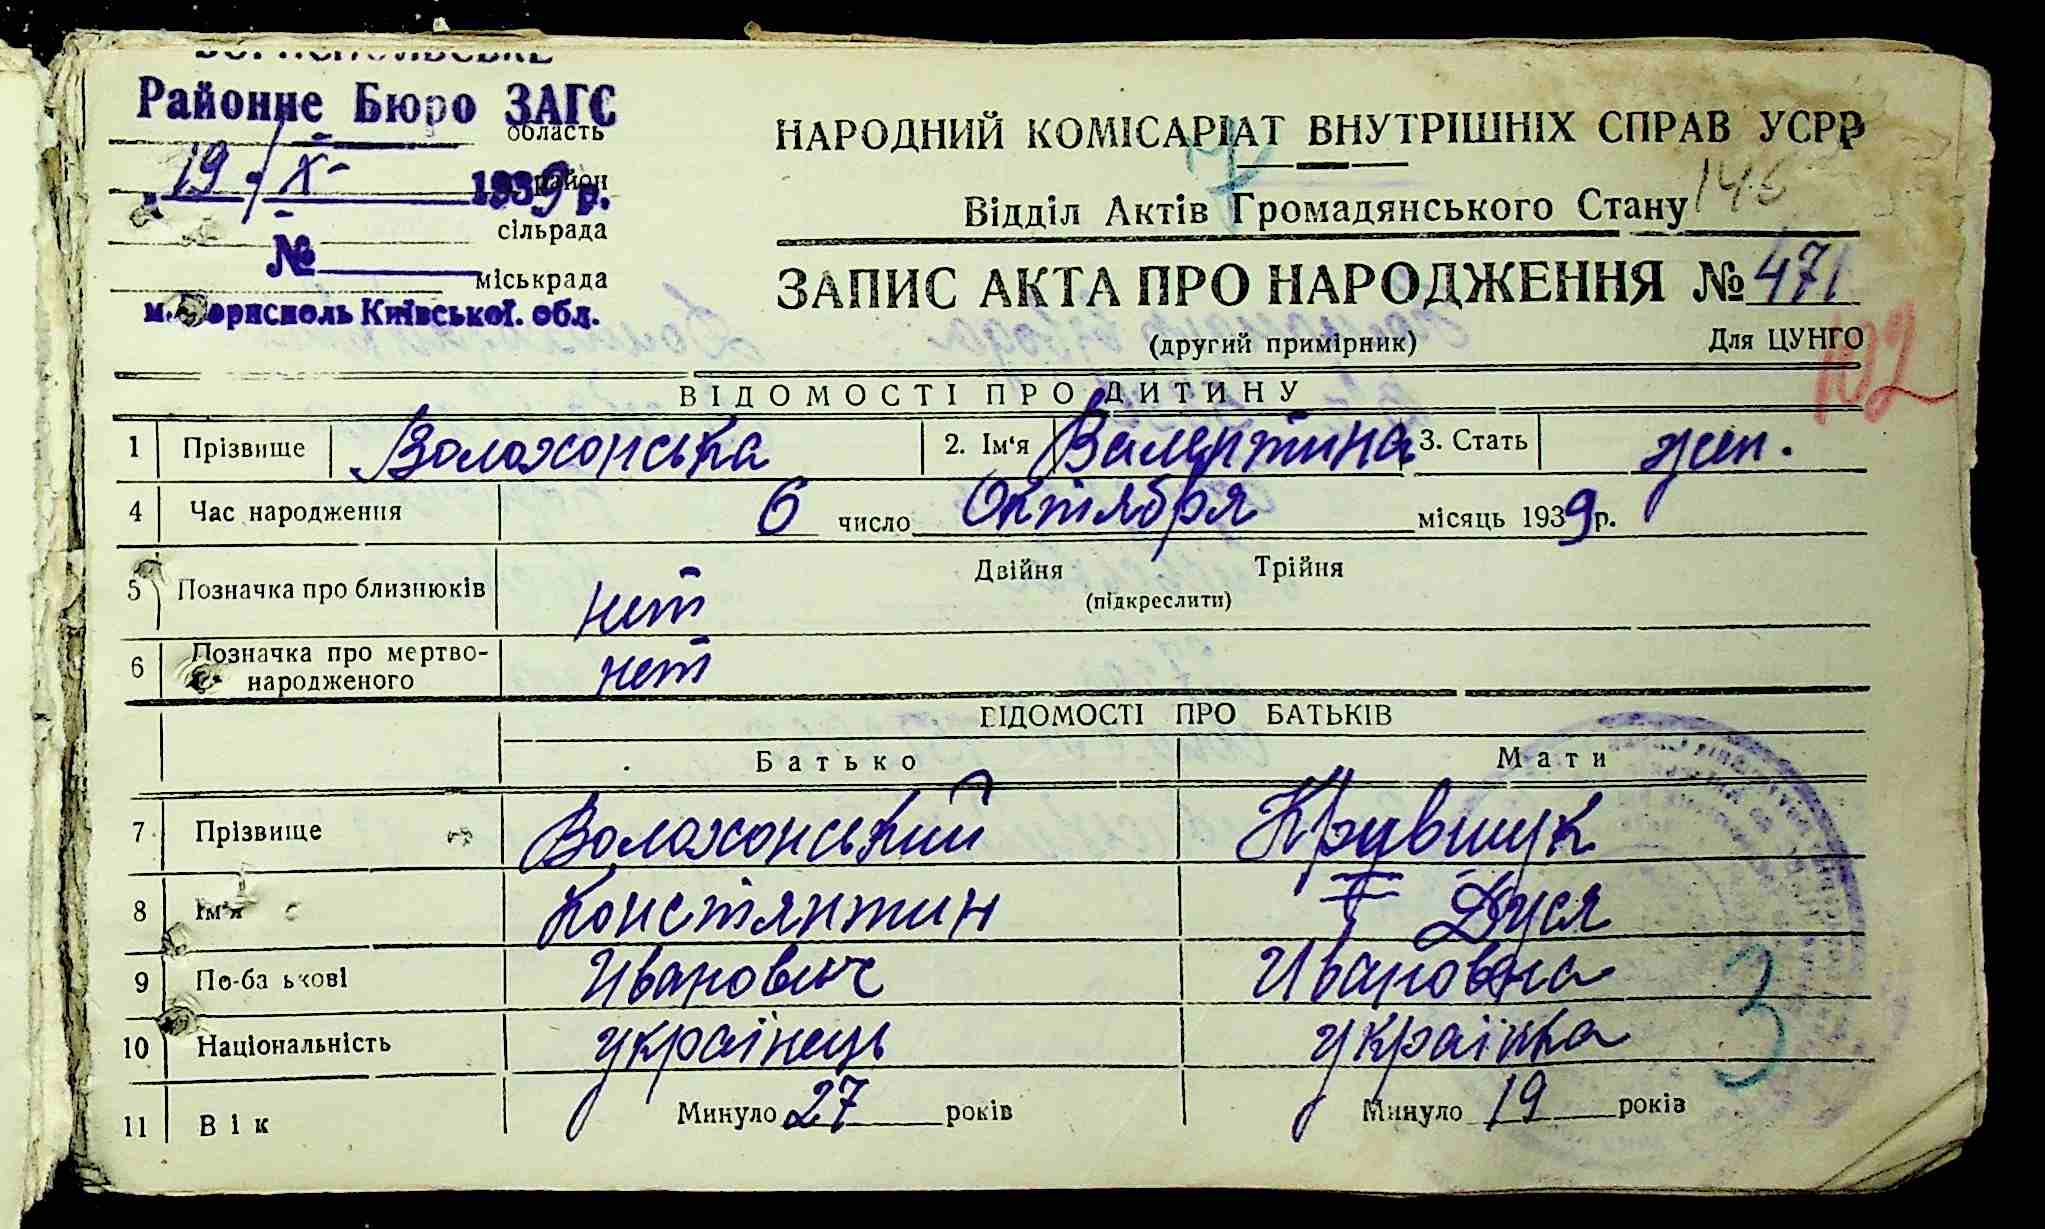 БОРИСПОЛЬСЬКЕ
Районне Бюро ЗАГС
область
19 / X- 1939 р.
район
сільрада
№
міськрада
м. Бориспол​ь Київської. обл.
НАРОДНИЙ КОМІСАРІАТ ВНУТРІШНІХ СПРАВ УСРР
Відділ Актів Громадянського Стану
146
ЗАПИС АКТА ПРО НАРОДЖЕННЯ № 471
(другий примірник)
Для ЦУНГО
102
ВІДОМОСТІ ПРО ДИТИНУ
1 Прізвище Волохонська 2. Ім'я Валентина 3. Стать жен.
4 Час народження 6 число Октября місяць 1939 р.
5 Позначка про близнюків нет Двійня Трійня
(підкреслити)
6 Позначка про мертво-
народженого нет
ВІДОМОСТІ ПРО БАТЬКІВ
Батько Мати
7 Прізвище Волохонський
8 Ім'я Констянтин Дуся
9 По-ба ькові Иванович Ивановна
10 Національність українець українка
11 Вік Минуло 27 років Минуло 19 років
3